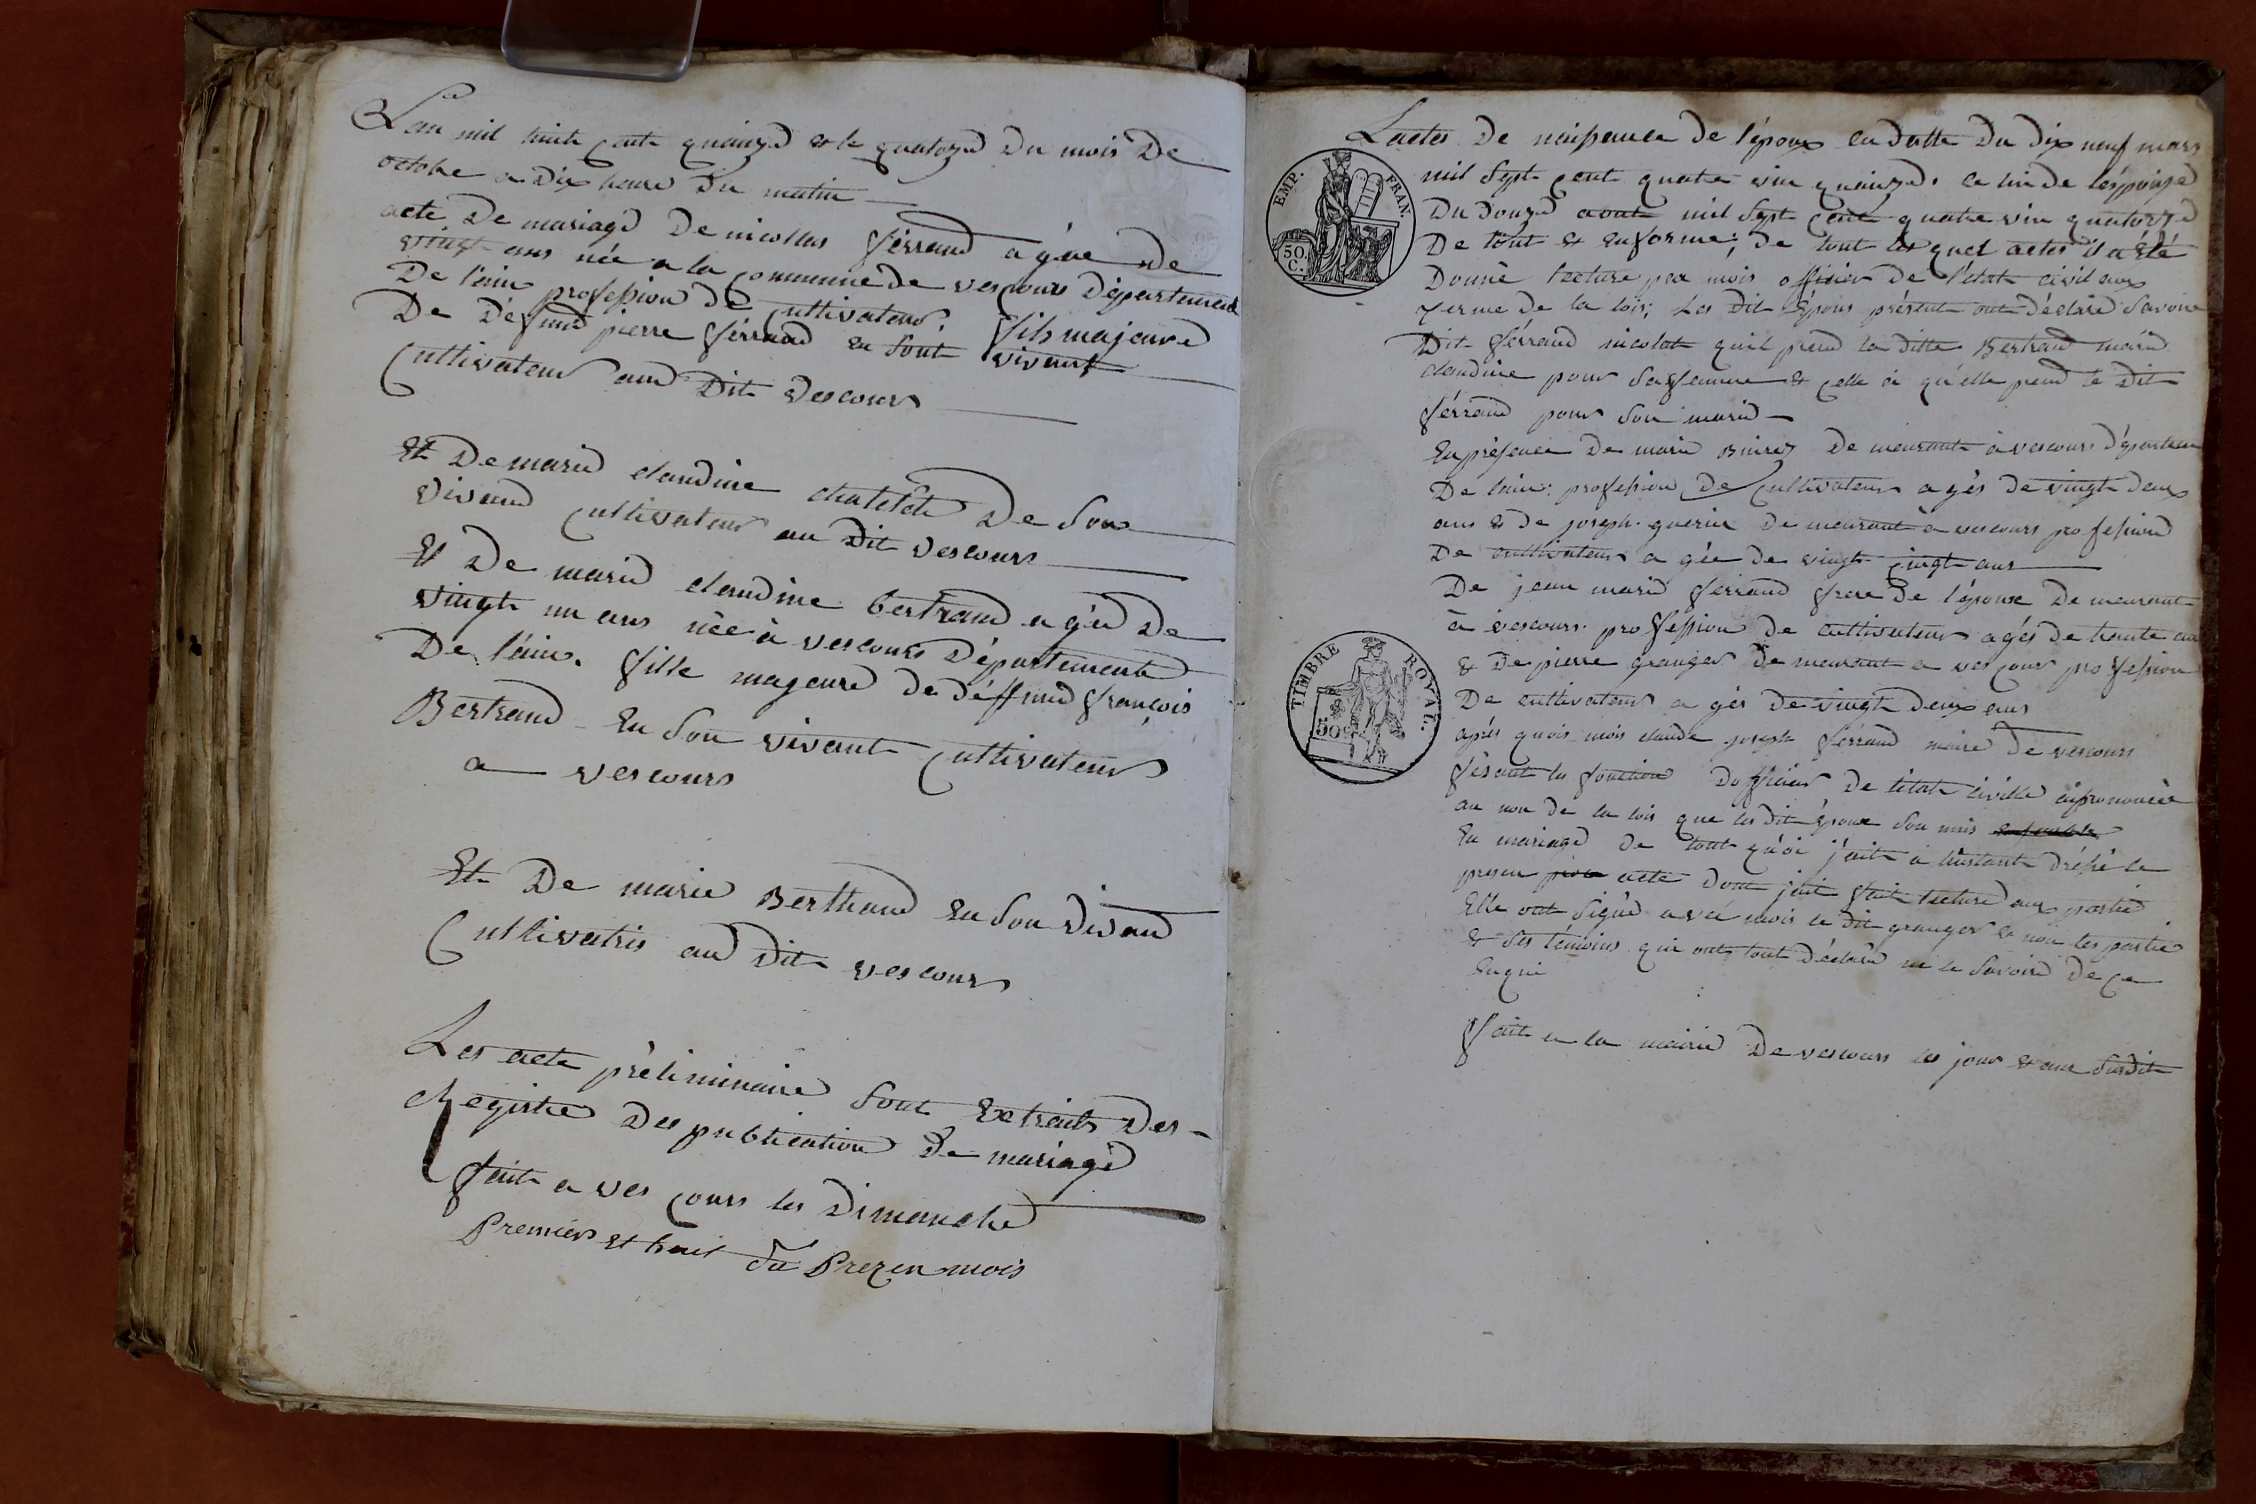 L'an mil huit cent quainze et le quatorze du mois De
octobre a Dix heure du matin
acte De mariage De nicollas férrand agée de
vingt ans née a la commune de vescours Département
De l'ain profession De Cultivateur. fils majeure
De Défund pierre férrand en sont vivant
Cultivateur aud Dit vescours
Et De marie claudine chatelet De son
vivand cultivateur au Dit vescours
Et De marie claudine bertrand agée De
vingt un ans née à vescours Département
De l'ain. fille majeure de déffund françois
Bertrand En son vivant Cultivateur
a vescours
Et De marie Berthand En son vivand
Cultivatris aud Dit vescours
Les acte préliminaire sont Extraits Des
Registre Des publication De mariage
fait a ves cours les Dimanche
Premiers et huit du Prezen mois
Lactes De naissance De l'époux en datte Du Dix neuf mars
EMP. FRAN.
50. C.
mil sept cent quatre vin quainze. celui de l'espouse
Du douze aout mil sept cent quatre vin quatorze
De tout et en forme; de tout les quel actes il a été
Donné lecture par mois officier De l'état civil aux
terme de la lois; Les dit Epoux présent ont déclaré Savoire
Dit férrand nicolat quil prend la ditte Bertrand marie
claudine pour sa femme et celle ci qu'elle prend le Dit
férrand pour son marie
En présence De marie De meurant à vescours Département
De l'ain: profession De Cultivateur agés de vingt deux
ans & de joseph guerin De meurant a vescours profession
De cultivateur agée de vingt cinqt ans
De jean marie férrand frere De l'épouse De meurant
TIMBRE ROYAL.
50c
à vescours profession De cultivateur agés de trante ans
& De pierre granger De meurant a vescours profession
De cultivateur agés De vingt deux ans
aprés quois mois claude joseph férrand maire De vescours
fésant la fonction Dofficier De l'état civille a prononcée
au non de la lois que les dit Epoux son unis
En mariage De tout quoi j'ait à l'instant dréssé le
presen acte Dont jait fait lecture aux partie
Elle ont signé avec mois le dit granger & non les partie
& ses témoins qui ont tout déclaré ne le savoire De ce
Enqui
fait a la mairie De vescours les jour & ans susdit